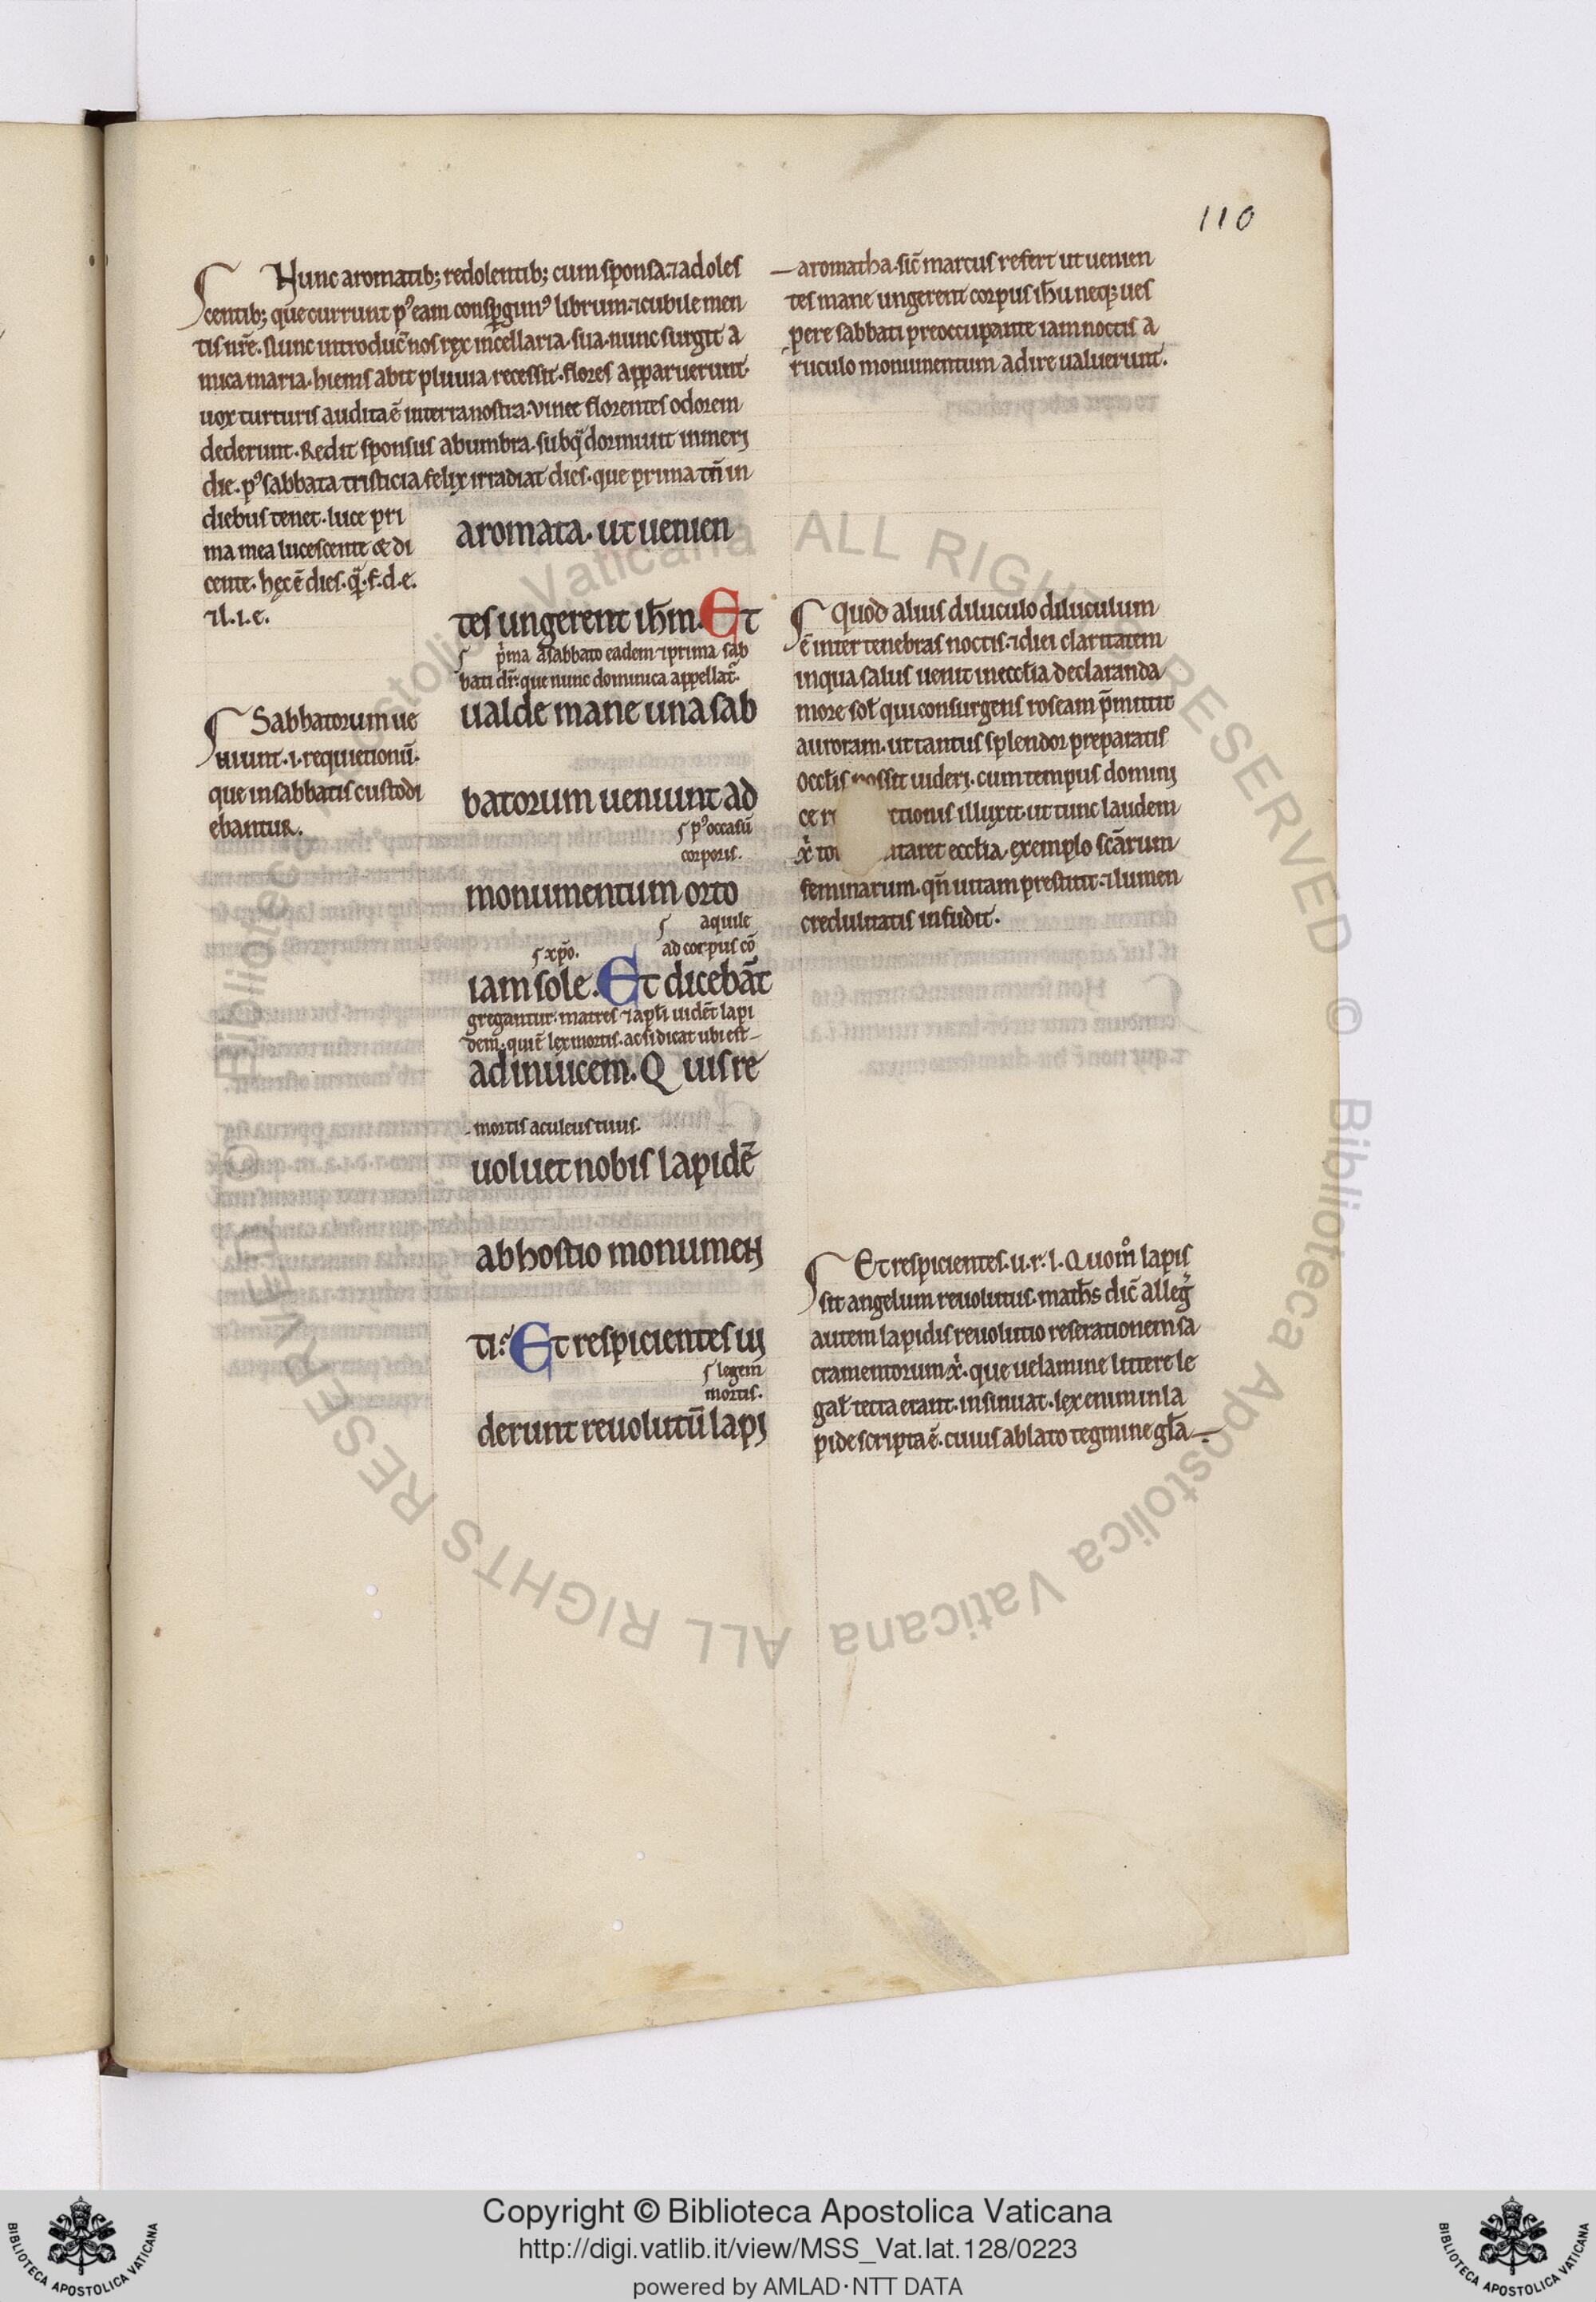 110
Hunc aromatib; redolentib; cum sponsa ⁊ adoles
centib; que currunt pꝰ eam conspgimꝰ librum ⁊ cubile men
tis nr̄e. Nunc introduc̄ nos rex in cellaria sua. nunc surgit a
mica maria. hiems abit pluuia recessit. flores apparuerunt.
uox turturis audita ē in terra nostra. vinee florentes odorem
dederunt. Redit sponsus ab umbra. sub q̄ dormiuit in meri
die. pꝰ sabbata tristicia felix irradiat dies. que prima tn̄ in
diebus tenet. luce pri
ma mea lucescente & di
cente. hęc ē dies. q̄. f. d. e.
⁊ l. i. e.
Sabbatorum ue
niunt. i. requietionū.
que in sabbatis custodi
ebantur.
aromata. ut uenien
tes ungerent ih̄m. Et
p̄ma a sabbato eadem ⁊ prima sab
bati dr̄. que nunc dominica appellat̄.
ualde mane una sab
batorum ueniunt ad
pꝰ occasū
corporis.
monumentum orto
aquile
xp̄o. ad corpus cō
iam sole. Et dicebāt
gregantur. matres ⁊ apl̄i uidēt lapi
dem. qui ē lex mortis. ac si dicat ubi est
ad inuicem. Quis re
mortis aculeus tuus.
uoluet nobis lapidē
ab hostio monumen
ti. Et respicientes ui
legem
mortis.
derunt reuolutū lapi
aromatha. sic̄ marcus refert ut uenien
tes mane ungerent corpus ih̄u neq; ues
pere sabbati preoccupante iam noctis a
ruculo monumentum adire ualuerunt.
Quod alius diluculo diluculum
ē inter tenebras noctis. ⁊ diei claritatem
in qua salus uenit in eccl̄ia declaranda
more sol̄ qui consurgens roseam p̄mittit
auroram. ut tantus splendor preparatis
occl̄is possit uideri. cum tempus domini
ce r ctionis illuxit. ut tunc laudem
x̄ to taret eccl̄ia. exemplo scārum
feminarum. qn̄ uitam prestitit. ⁊ lumen
credulitatis infudit.
Et respicientes. u. r. l. Quom̊ lapis
sit angelum reuolutus. math̄s dic̄ alleḡ
autem lapidis reuolutio reserationem sa
cramentorum x̄. que uelamine littere le
gal̄ tecta erant. insinuat. lex enim in la
pide scripta ē. cuius ablato tegmine gl̄a
Copyright © Biblioteca Apostolica Vaticana
http://digi.vatlib.it/view/MSS_Vat.lat.128/0223
powered by AMLAD·NTT DATA
BIBLIOTECA APOSTOLICA VATICANA
BIBLIOTECA APOSTOLICA VATICANA
© Biblioteca Apostolica Vaticana ALL RIGHTS RESERVED © Biblioteca Apostolica Vaticana ALL RIGHTS RESERVED